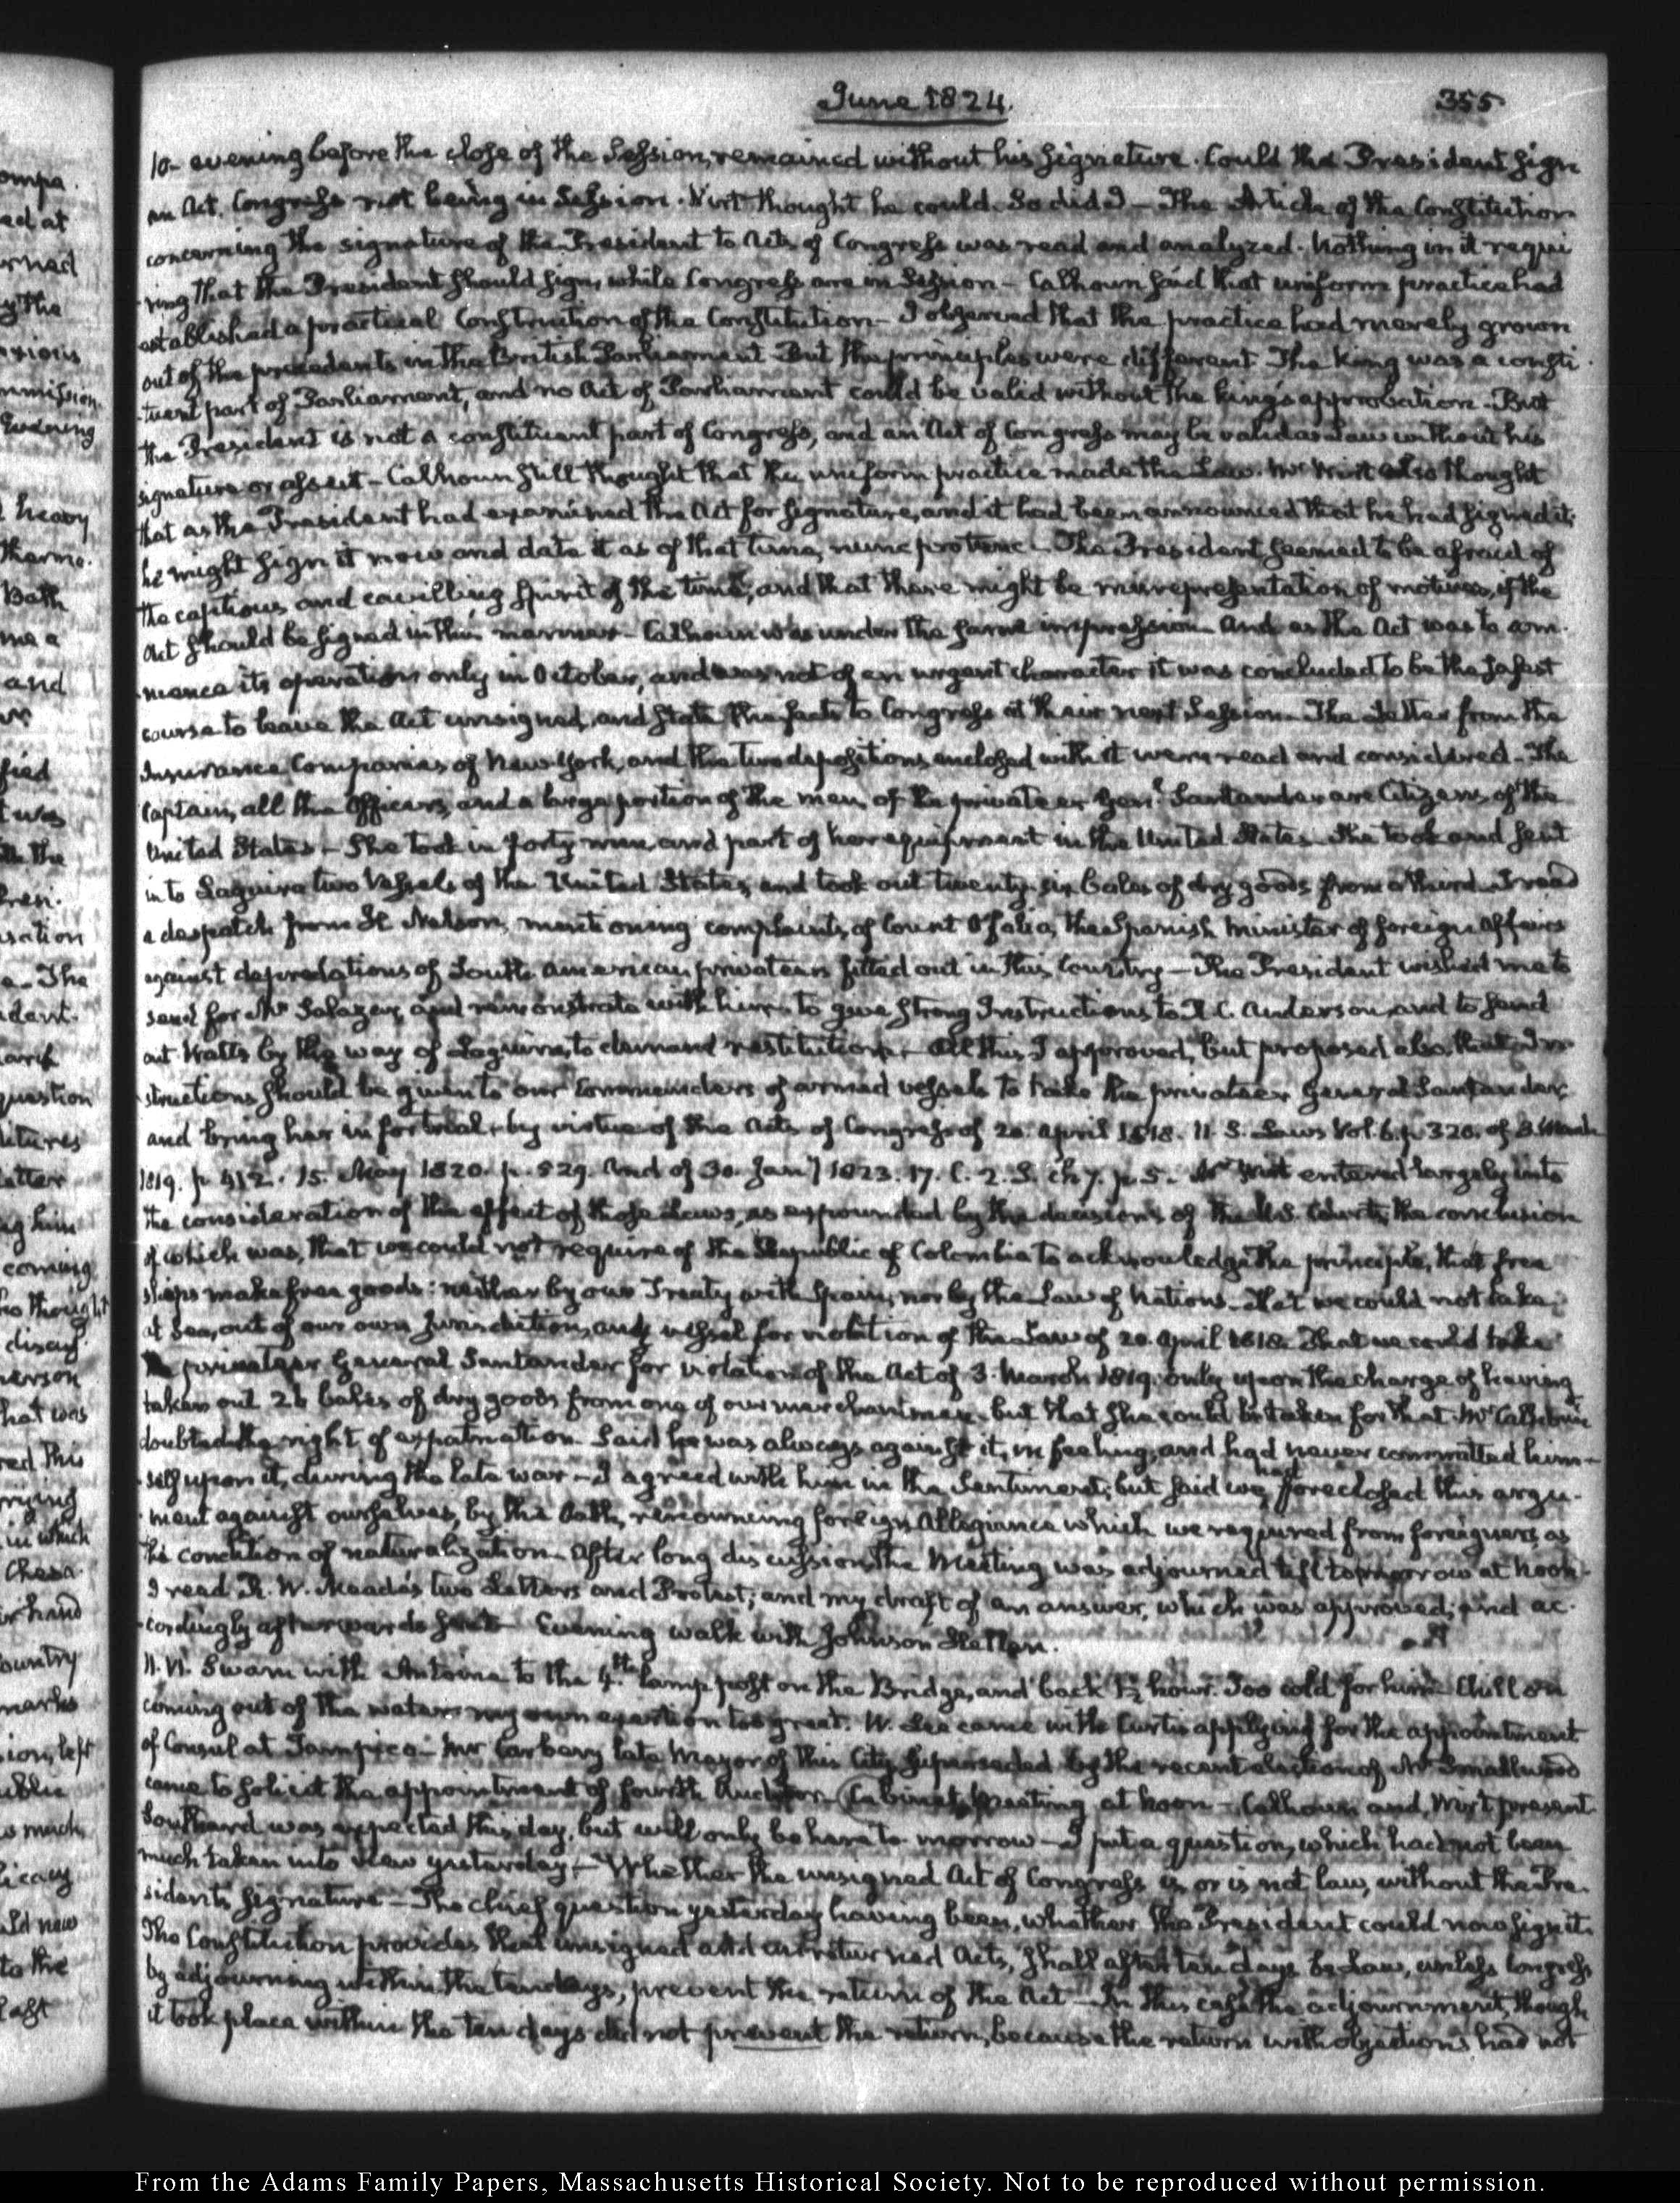 June 1824.
355
10- evening before the close of the Session, remained without his signature. Could the President sign
an Act, Congress not being in Session. Wirt thought he could. So did I — The Article of the Constitution
concerning the signature of the President to Acts of Congress was read and analyzed. Nothing in it requi
ring that the President should sign, while Congress are in Session — Calhoun said that uniform practice had
established a practical Construction of the Constitution — I observed that the practice had merely grown
out of the precedents in the British Parliament. But the principles were different. The King was a consti
tuent part of Parliament, and no Act of Parliament could be valid without the king's approbation. But
the President is not a constituent part of Congress, and an Act of Congress may be valid as Law without his
signature or assent — Calhoun still thought that the uniform practice made the Law. Mr Wirt also thought
that as the President had examined the Act for signature, and it had been announced that he had signed it,
he might sign it now and date it as of that time, nunc pro tunc — The President seemed to be afraid of
the captious and cavilling spirit of the time, and that there might be misrepresentation of motives, if the
Act should be signed in this manner — Calhoun was under the same impression. And as the Act was to com-
mence its operation only in October, and was not of an urgent character it was concluded to be the safest
course to leave the Act unsigned, and state the facts to Congress at their next Session. The Letter from the
Insurance Companies of New York, and the two depositions enclosed with it were read and considered — The
Captain, all the Officers, and a large portion of the men, of the privateer Genl. Santander are Citizens of the
United States — She took in forty men, and part of her equipment in the United States. She took and sent
into Laguira two Vessels of the United States, and took out twenty-six bales of dry goods from a third. I read
a despatch from H. Nelson, mentioning complaints of Count Ofalia, the Spanish Minister of foreign Affairs
against depredations of South American privateers fitted out in this Country — The President wished me to
send for Mr Salazar, and remonstrate with him — to give strong Instructions to R. C. Anderson, and to send
out Watts by the way of Laguira, to demand restitution — All this I approved, but proposed also that In-
structions should be given to our Commanders of armed vessels to take the privateer General Santander,
and bring her in for trial, by virtue of the Acts of Congress of 20. April 1818. U. S. Laws Vol. 6. p 320. of 3. March
1819. p 412. 15. May 1820. p. 529. And of 30. Jany 1823. 17. C. 2. S. ch 7. p. 5. Mr Wirt entered largely into
the consideration of the effect of those Laws, as expounded by the decisions of the U.S. Courts; the conclusion
of which was, that we could not require of the Republic of Colombia to acknowledge the principle, that free
ships make free goods: neither by our Treaty with Spain, nor by the Law of Nations. That we could not take
at sea, out of our own jurisdiction, any vessel for violation of the Law of 20. April 1818. That we could take
the privateer General Santander for violation of the Act of 3. March 1819. only upon the charge of having
taken out 26 bales of dry goods from one of our merchantmen — but that she could be taken for that. Mr Calhoun
doubted the right of expatriation. Said he was always against it, in feeling, and had never committed him-
self upon it, during the late war — I agreed with him in the Sentiment; but said we had foreclosed this argu-
ment against ourselves, by the Oath, renouncing foreign Allegiance which we required from foreigners, as
the condition of naturalization. After long discussion, the Meeting was adjourned till tomorrow at Noon.
I read R. W. Meade's two Letters and Protest; and my draft of an answer, which was approved; and ac-
cordingly afterwards sent. Evening walk with Johnson Hellen.
11. IV. Swam with Antoine to the 4th lamp post on the Bridge, and back ½ hour. Too cold for him. Chill on
coming out of the water. my own exertion too great. W. Lee came with Curtis applying for the appointment
of Consul at Tampico — Mr Carbery late Mayor of this City, superseded by the recent election of Mr Smallwood
came to solicit the appointment of fourth Auditor. Cabinet Meeting at Noon — Calhoun and Wirt present.
Southard was expected this day, but will only be here to-morrow — I put a question, which had not been
much taken into view yesterday — Whether the unsigned Act of Congress is or is not law, without the Pre-
sident's signature — The chief question yesterday having been, whether the President could now sign it.
The Constitution provides that unsigned and unreturned Acts, shall after ten days be Law, unless Congress
by adjourning within the ten days, prevent the return of the Act — In this case the adjournment, though
it took place within the ten days did not prevent the return, because the return with objections had not
From the Adams Family Papers, Massachusetts Historical Society. Not to be reproduced without permission.